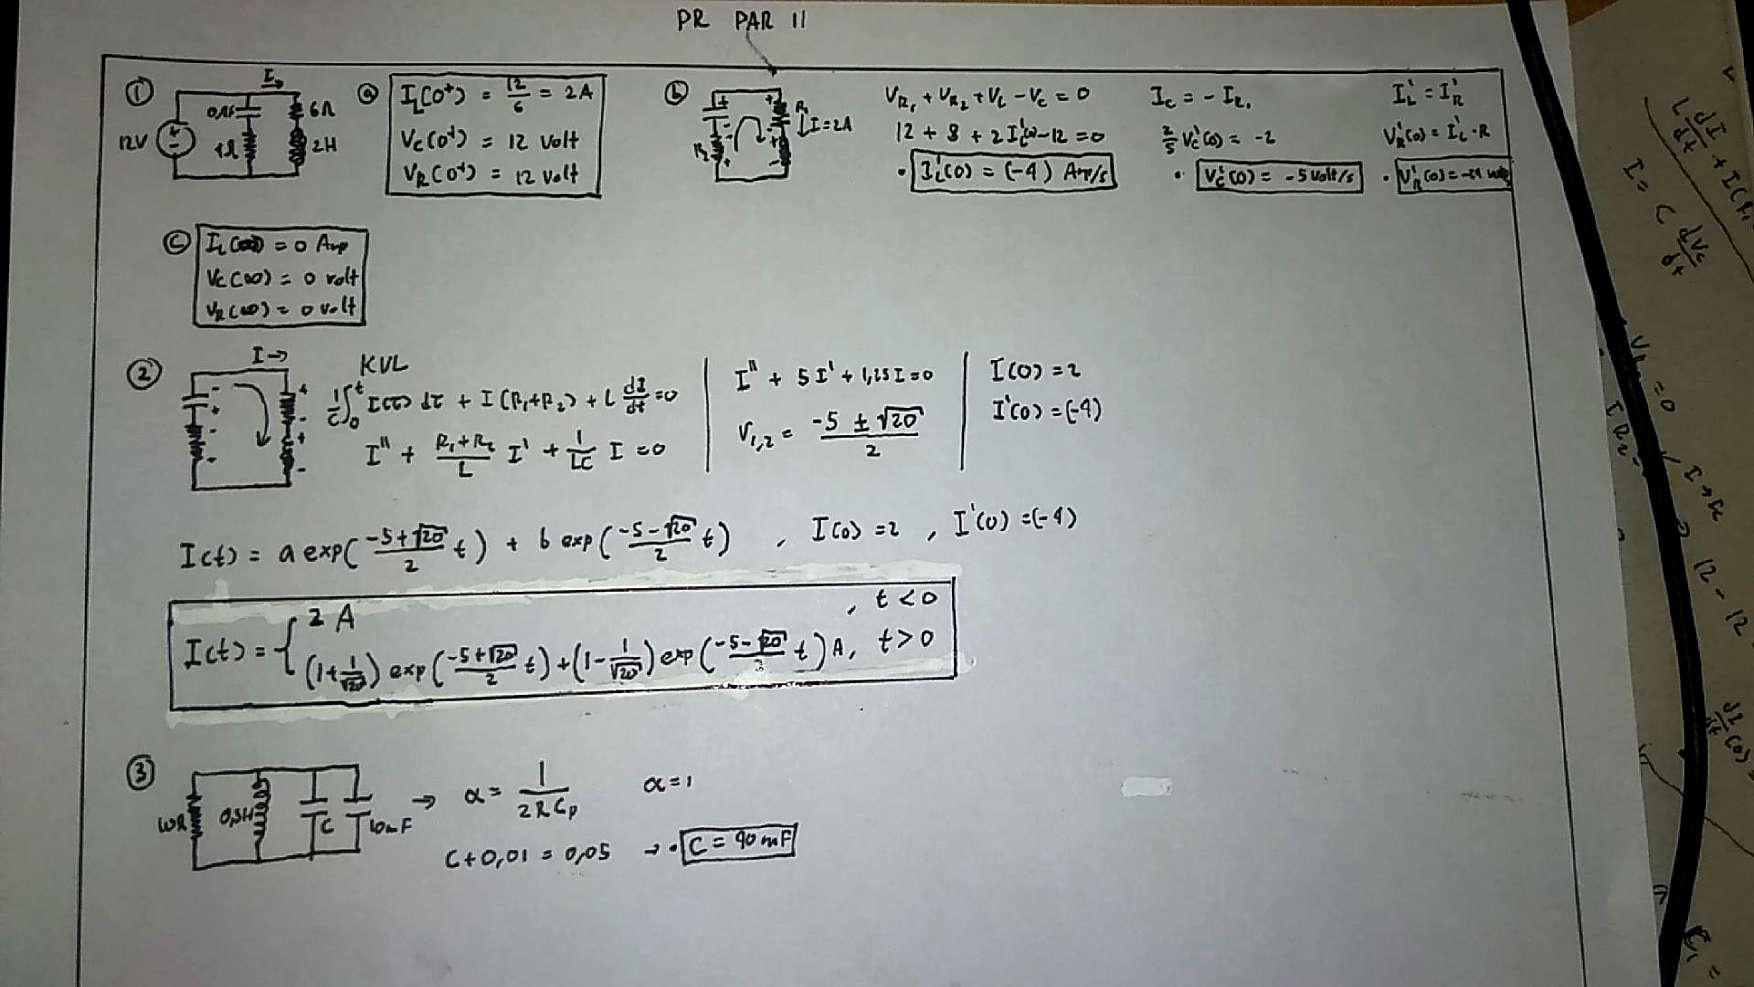 PR PAR 11
① I→ 12V 6Ω 2H
ⓐ I_L(0⁺) = 12/6 = 2A
V_C(0⁺) = 12 volt
V_R(0⁺) = 12 volt
ⓑ R₁ ↓I=2A
V_R₁ + V_R₂ + V_L - V_C = 0
12 + 8 + 2I_L'(0) - 12 = 0
• I_L'(0) = (-4) Amp/s
I_C = - I_R₁
2/5 V_C'(0) = -2
• V_C'(0) = -5 volt/s
I_L' = I_R'
V_R'(0) = I_L' · R
• V_R'(0) = -24
ⓒ I_L(∞) = 0 Amp
V_C(∞) = 0 volt
V_R(∞) = 0 volt
② I→
KVL
1/C ∫₀ᵗ I(τ) dτ + I(R₁+R₂) + L dI/dt = 0
I'' + (R₁+R₂)/L I' + 1/LC I = 0
I'' + 5I' + 1,25I = 0
r₁,₂ = (-5 ± √20)/2
I(0) = 2
I'(0) = (-4)
I(t) = a exp((-5+√20)/2 t) + b exp((-5-√20)/2 t) , I(0) = 2 , I'(0) = (-4)
I(t) = { 2 A , t < 0
(1+1/√20) exp((-5+√20)/2 t) + (1-1/√20) exp((-5-√20)/2 t) A, t > 0
③ 10Ω 0,5H C 10mF → α = 1/(2RCp) α = 1
C + 0,01 = 0,05 → • C = 40 mF
L dI/dt + I(R₁
I = C dVc/dt
= 0
12 - 12
dI/dt (0)